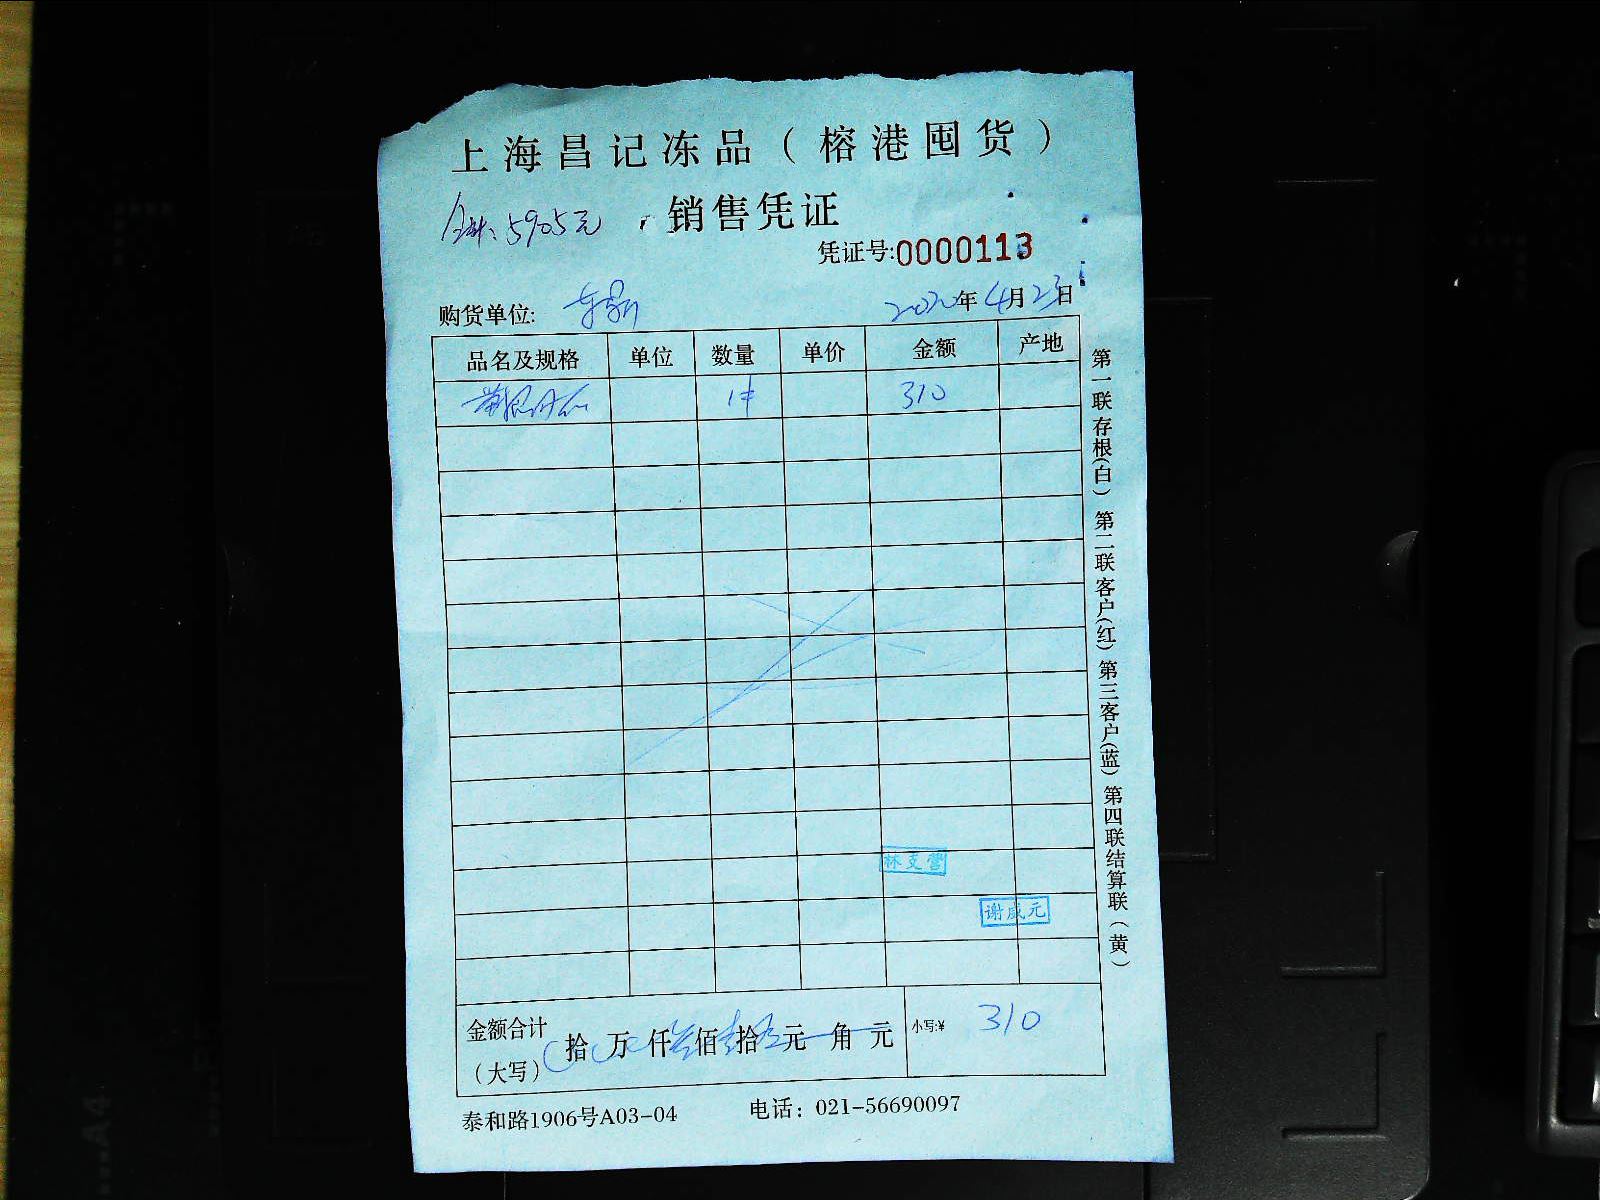 上海昌记冻品（榕港囤货）
销售凭证
5905元
凭证号:0000113
购货单位:
2020年4月23日
品名及规格 单位 数量 单价 金额 产地
1件 310
林支营
谢成元
金额合计（大写） 拾 万 仟 叁佰 壹拾 元 角 元 小写:¥ 310
泰和路1906号A03-04 电话：021-56690097
第一联存根(白) 第二联客户(红) 第三客户(蓝) 第四联结算联（黄）